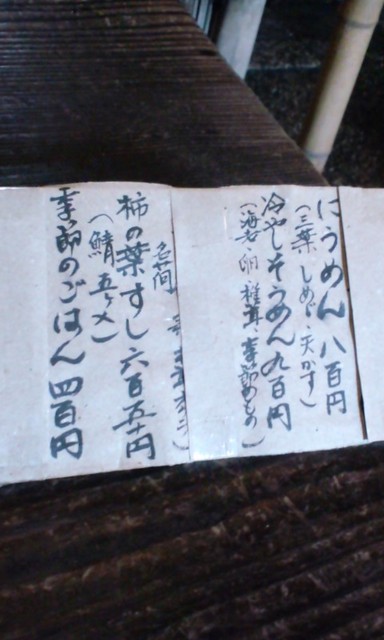 にうめん 八百円
(三葉 しめじ・天かす)
冷やしそうめん 九百円
(海老 卵 椎茸、季節のもの)
柿の葉すし 六百五十円
(鯖 五ヶ入)
季節のごはん 四百円